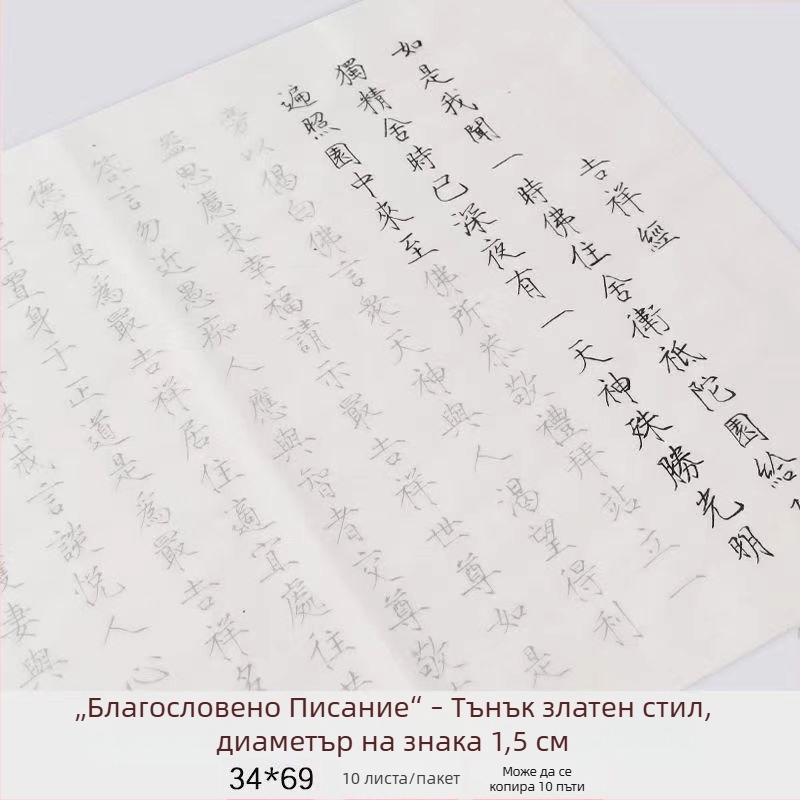 吉祥經
如是我聞一時佛住舍衛祇陀園給
獨精舍時已深夜有一天神殊勝光明
遍照園中來至佛所恭敬禮拜站立一
旁以偈白佛言眾天神與人渴望得利
益思慮求幸福請示最吉祥世尊如是
答言勿近愚痴人應與智者交尊敬
德者是爲最吉祥居住適宜處往
置身于正道是爲最吉祥多
戒言談悅人心
妻與
„Благословено Писание“ – Тънък златен стил,
диаметър на знака 1,5 см
34*69
10 листа/пакет
Може да се
копира 10 пъти